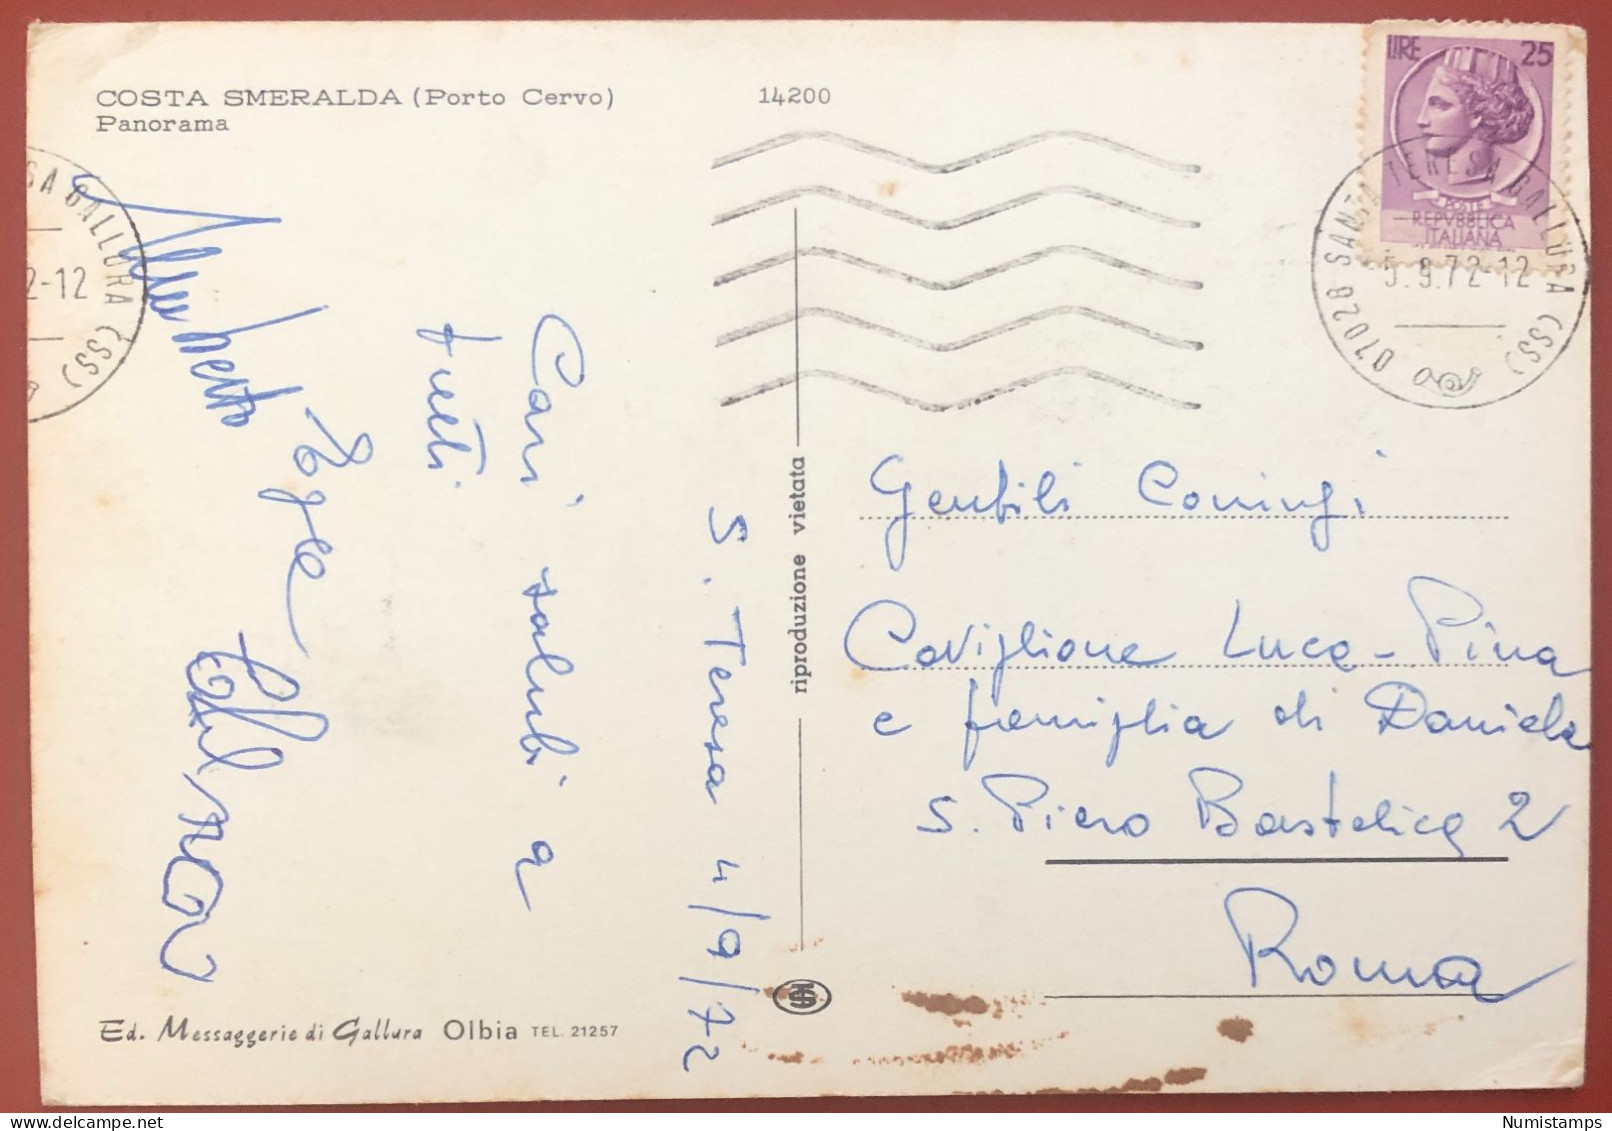 COSTA SMERALDA (Porto Cervo)
Panorama
14200
LIRE 25
POSTE
REPVBBLICA
ITALIANA
07028 SANTA TERESA GALLURA (SS)
5.9.72-12
SA GALLURA (SS)
2-12
S. Teresa 4/9/72
Cari saluti a
tutti
Umberto
riproduzione vietata
Gentili Coniugi
Caviglione Luca - Pina
e famiglia di Daniela
S. Piero Bastelica 2
Roma
Ed. Messaggerie di Gallura Olbia TEL. 21257
Numistamps